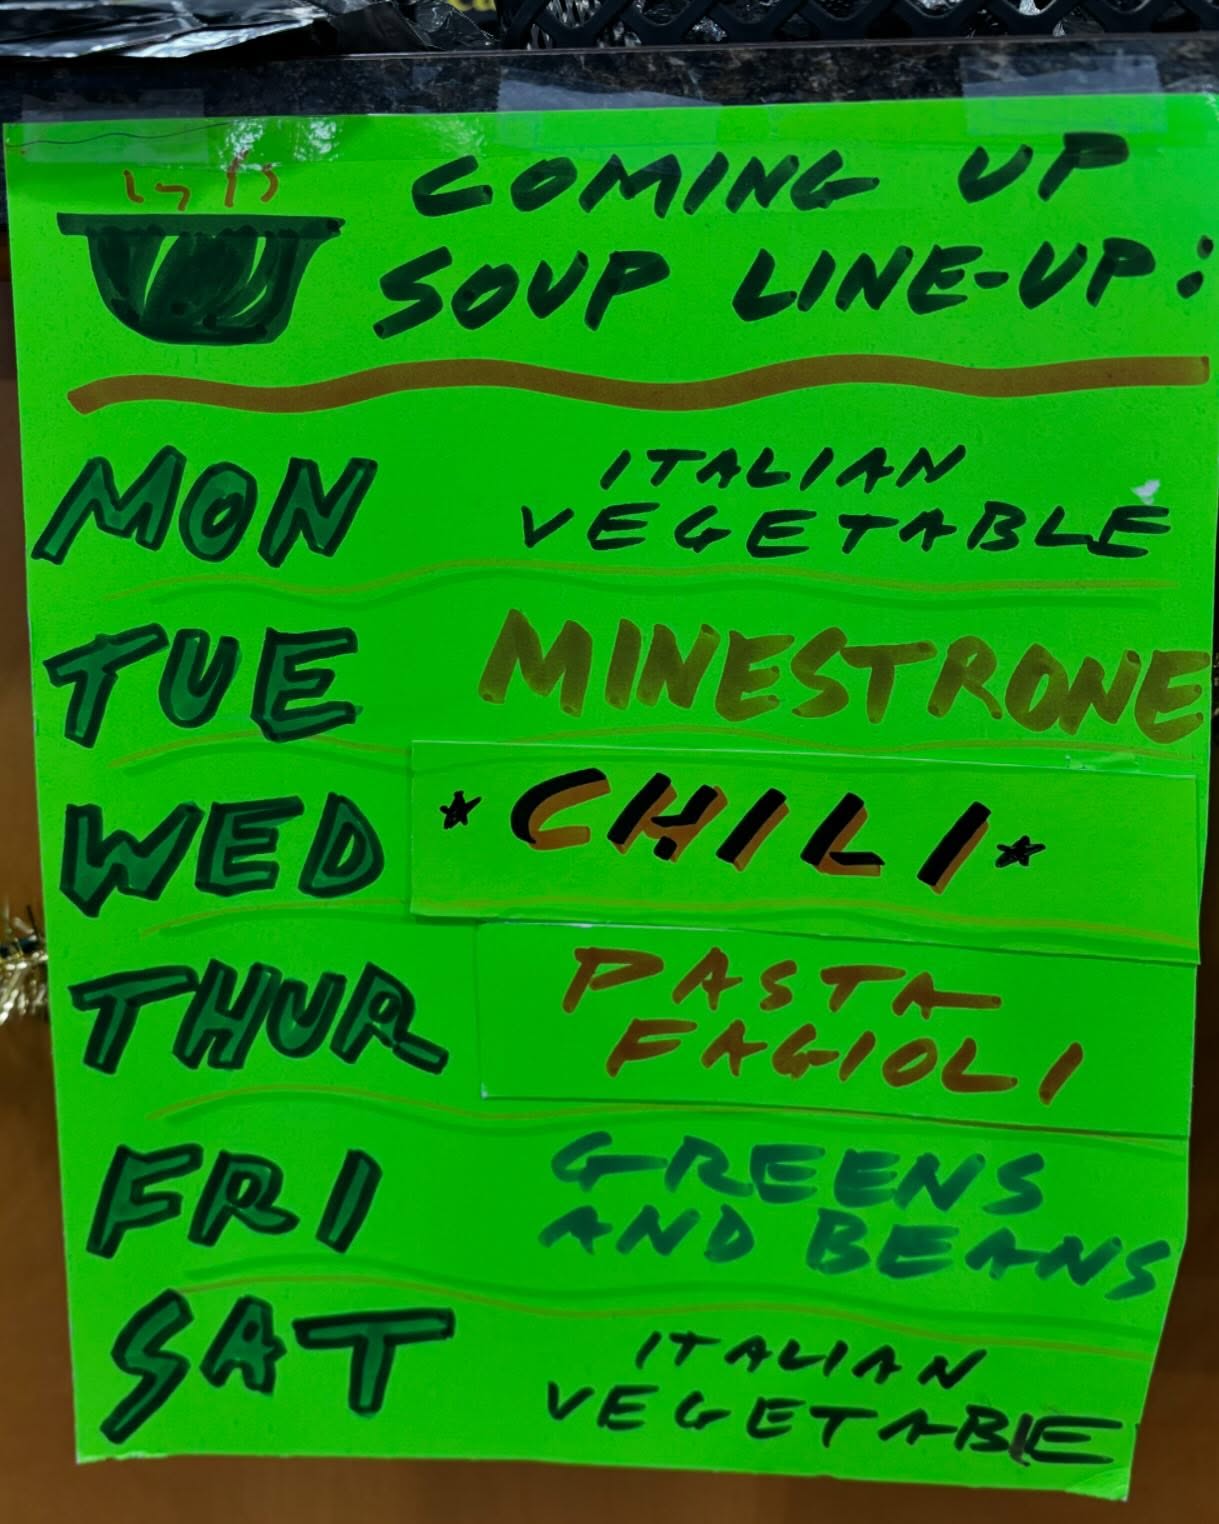 COMING UP
SOUP LINE-UP:
MON
ITALIAN
VEGETABLE
TUE
MINESTRONE
WED
CHILI
THUR
PASTA
FAGIOLI
FRI
GREENS
AND BEANS
SAT
ITALIAN
VEGETABLE